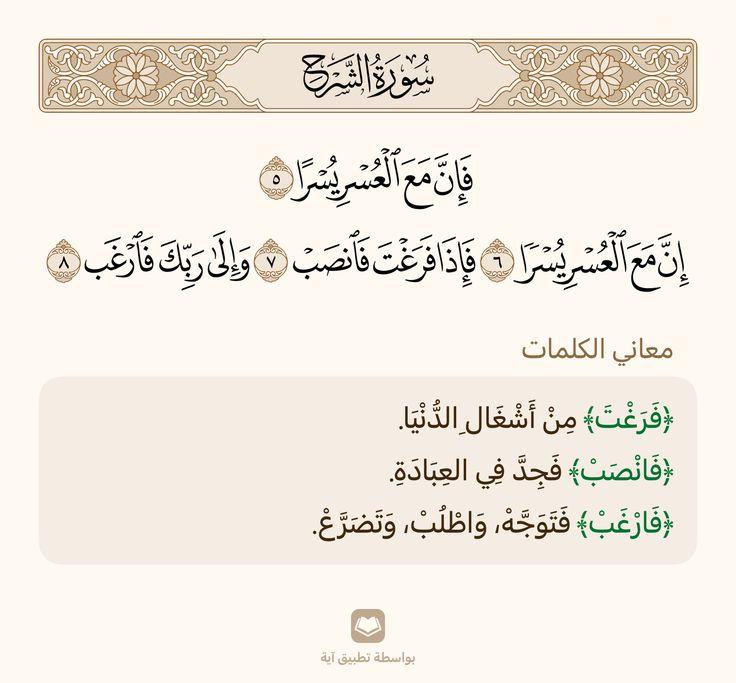 سُورَةُ الشَّرْحِ
فَإِنَّ مَعَ ٱلْعُسْرِ يُسْرًا ٥
إِنَّ مَعَ ٱلْعُسْرِ يُسْرًا ٦ فَإِذَا فَرَغْتَ فَٱنصَبْ ٧ وَإِلَىٰ رَبِّكَ فَٱرْغَب ٨
معاني الكلمات
﴿فَرَغْتَ﴾ مِنْ أَشْغَالِ الدُّنْيَا.
﴿فَانْصَبْ﴾ فَجِدَّ فِي العِبَادَةِ.
﴿فَارْغَبْ﴾ فَتَوَجَّهْ، وَاطْلُبْ، وَتَضَرَّعْ.
بواسطة تطبيق آية